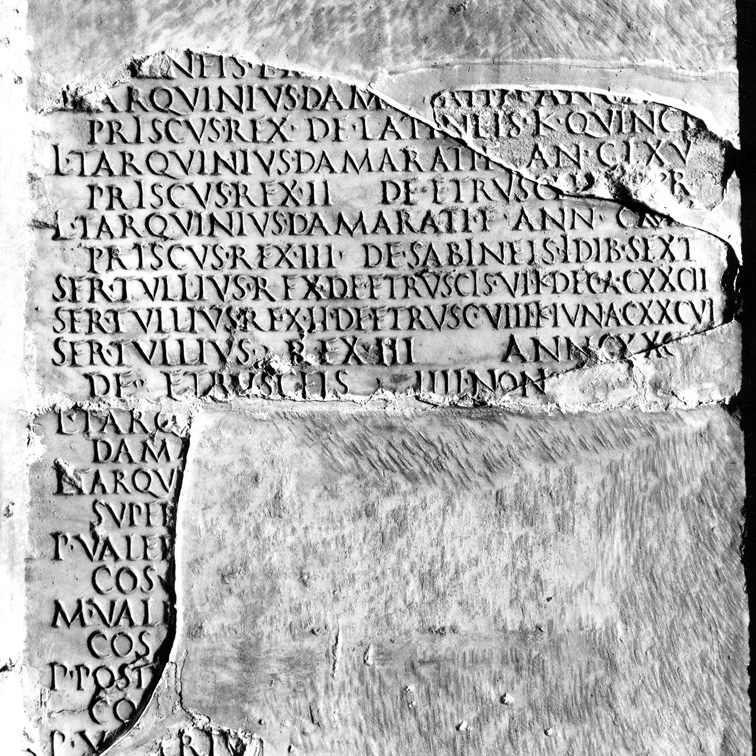 NEIS
L·TARQVINIVS·DAM
PRISCVS·REX· DE·LATINEIS·K·QVINCT
L·TARQVINIVS·DAMARATI·F AN·CLXV
PRISCVS·REX·II DE·ETRVSC PR
L·TARQVINIVS·DAMARATI·F ANN·
PRISCVS·REX·III· DE·SABINEIS·IDIB·SEXT
SER·TVLLIVS·REX·DE·ETRVSCIS·VII·DEC·A·CXXCII
SER·TVLLIVS·REX·II·DE·ETRVSC·VIIII·K·IVN·A·CXXCVI
SER·TVLLIVS· REX·III ANN·CXXC
DE· ETRVSCEIS IIII·NON
L·TARQ
DAMA
L·TARQV
SVPE
P·VALE
COS
M·VAL
COS
P·POST
CO
P·V RIV